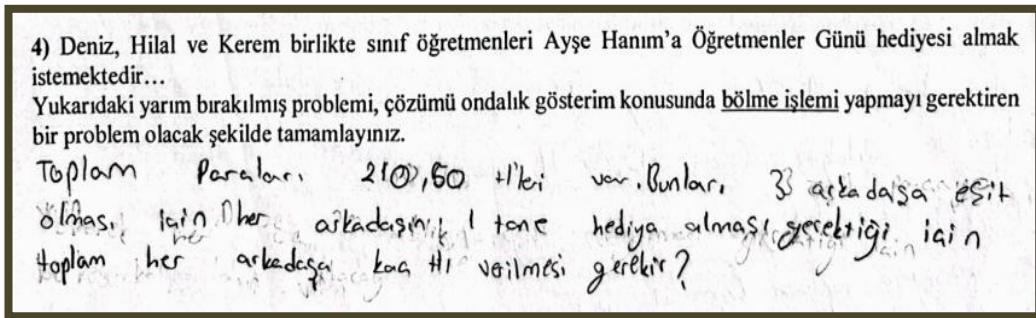 4) Deniz, Hilal ve Kerem birlikte sınıf öğretmenleri Ayşe Hanım'a Öğretmenler Günü hediyesi almak
istemektedir...
Yukarıdaki yarım bırakılmış problemi, çözümü ondalık gösterim konusunda bölme işlemi yapmayı gerektiren
bir problem olacak şekilde tamamlayınız.
Toplam Paraları 210,60 tl'leri var. Bunları 3 arkadaşa eşit
olması için her arkadaşının 1 tane hediya alması gerektiği için
toplam her arkadaşa kaç tl verilmesi gerekir?